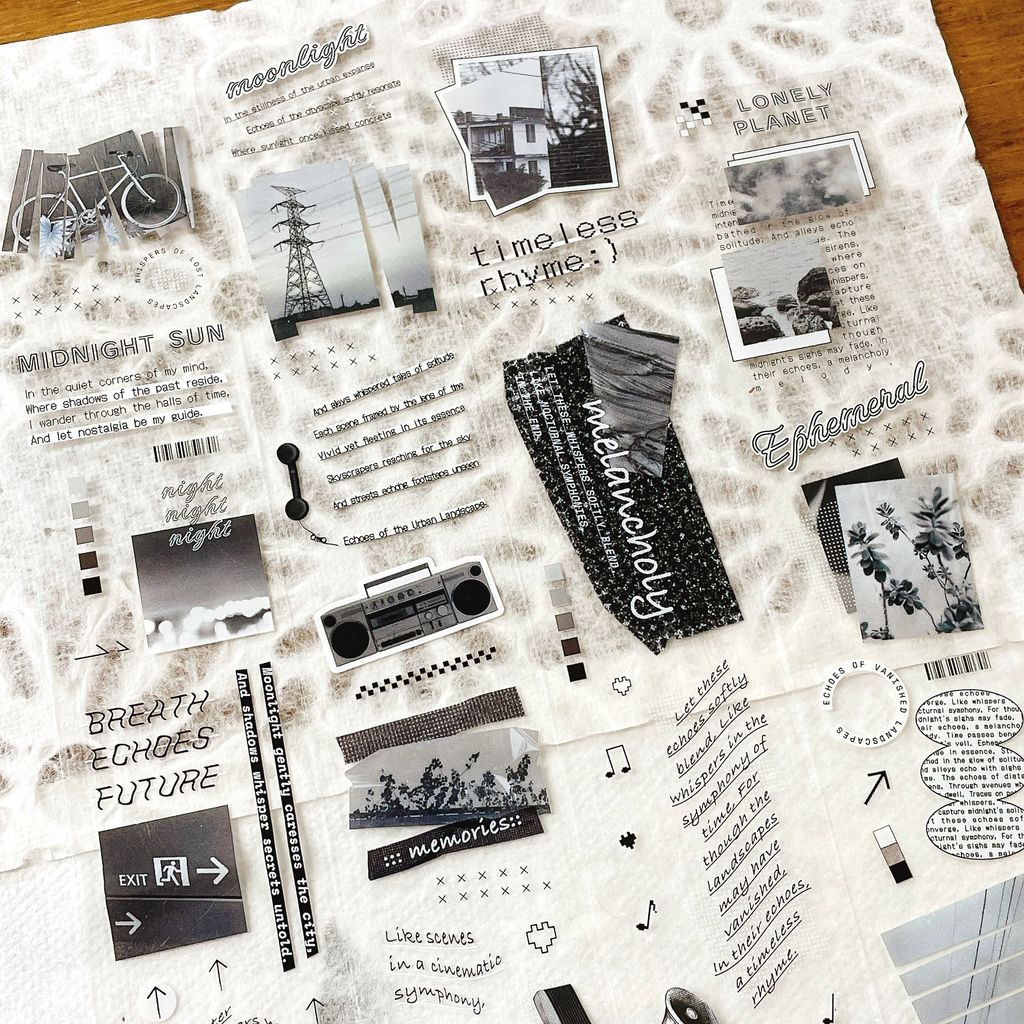 moonlight
In the stillness of the urban expanse
Echoes of the cityscape softly resonate
Where sunlight once kissed concrete
LONELY
PLANET
WHISPERS OF LOST LANDSCAPES
timeless
rhyme:)
bathed in the glow of
solitude. And alleys echo
midnight's sighs may fade, in
their echoes, a melancholy
melody.
MIDNIGHT SUN
In the quiet corners of my mind,
Where shadows of the past reside,
I wander through the halls of time,
And let nostalgia be my guide.
And alleys whispered tales of solitude
Each scene framed by the lens of time
Vivid yet fleeting in its essence
Skyscrapers reaching for the sky
And streets echoing footsteps unseen
Echoes of the Urban Landscape.
LET THESE WHISPERS SOFTLY BLEND,
LIKE NOCTURNAL SYMPHONIES,
IN THE END.
melancholy
Ephemeral
night
night
night
BREATH
ECHOES
FUTURE
Moonlight gently caresses the city,
And shadows whisper secrets untold.
EXIT
memories::
Like scenes
in a cinematic
symphony,
Let these
echoes softly
blend. Like
whispers in the
symphony of
time. For
though the
landscapes
may have
vanished,
In their echoes,
a timeless
rhyme.
ECHOES OF VANISHED LANDSCAPES